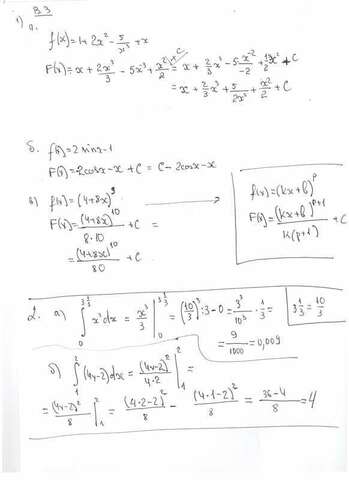 В 3
1) а.
f(x) = 1 + 2x² - 5/x³ + x
F(x) = x + 2x³/3 - 5x³ + x²/2 + C = x + 2/3 x³ - 5 x⁻²/-2 + x²/2 + C
= x + 2/3 x³ + 5/2x² + x²/2 + C
б. f(x) = 2 sinx - 1
F(x) = -2cosx - x + C = C - 2cosx - x
в) f(x) = (4+8x)⁹
F(x) = (4+8x)¹⁰/8·10 + C =
= (4+8x)¹⁰/80 + C
f(x) = (kx+b)ᵖ
F(x) = (kx+b)ᵖ⁺¹/k(p+1) + C
2. а) ∫₀^(3 1/3) x² dx = x³/3 |₀^(3 1/3) = (10/3)³ : 3 - 0 = 3³/10³ · 1/3 =
3 1/3 = 10/3
= 9/1000 = 0,009
б) ∫₁² (4x-2)dx = (4x-2)²/4·2 |₁² =
= (4x-2)²/8 |₁² = (4·2-2)²/8 - (4·1-2)²/8 = 36-4/8 = 4